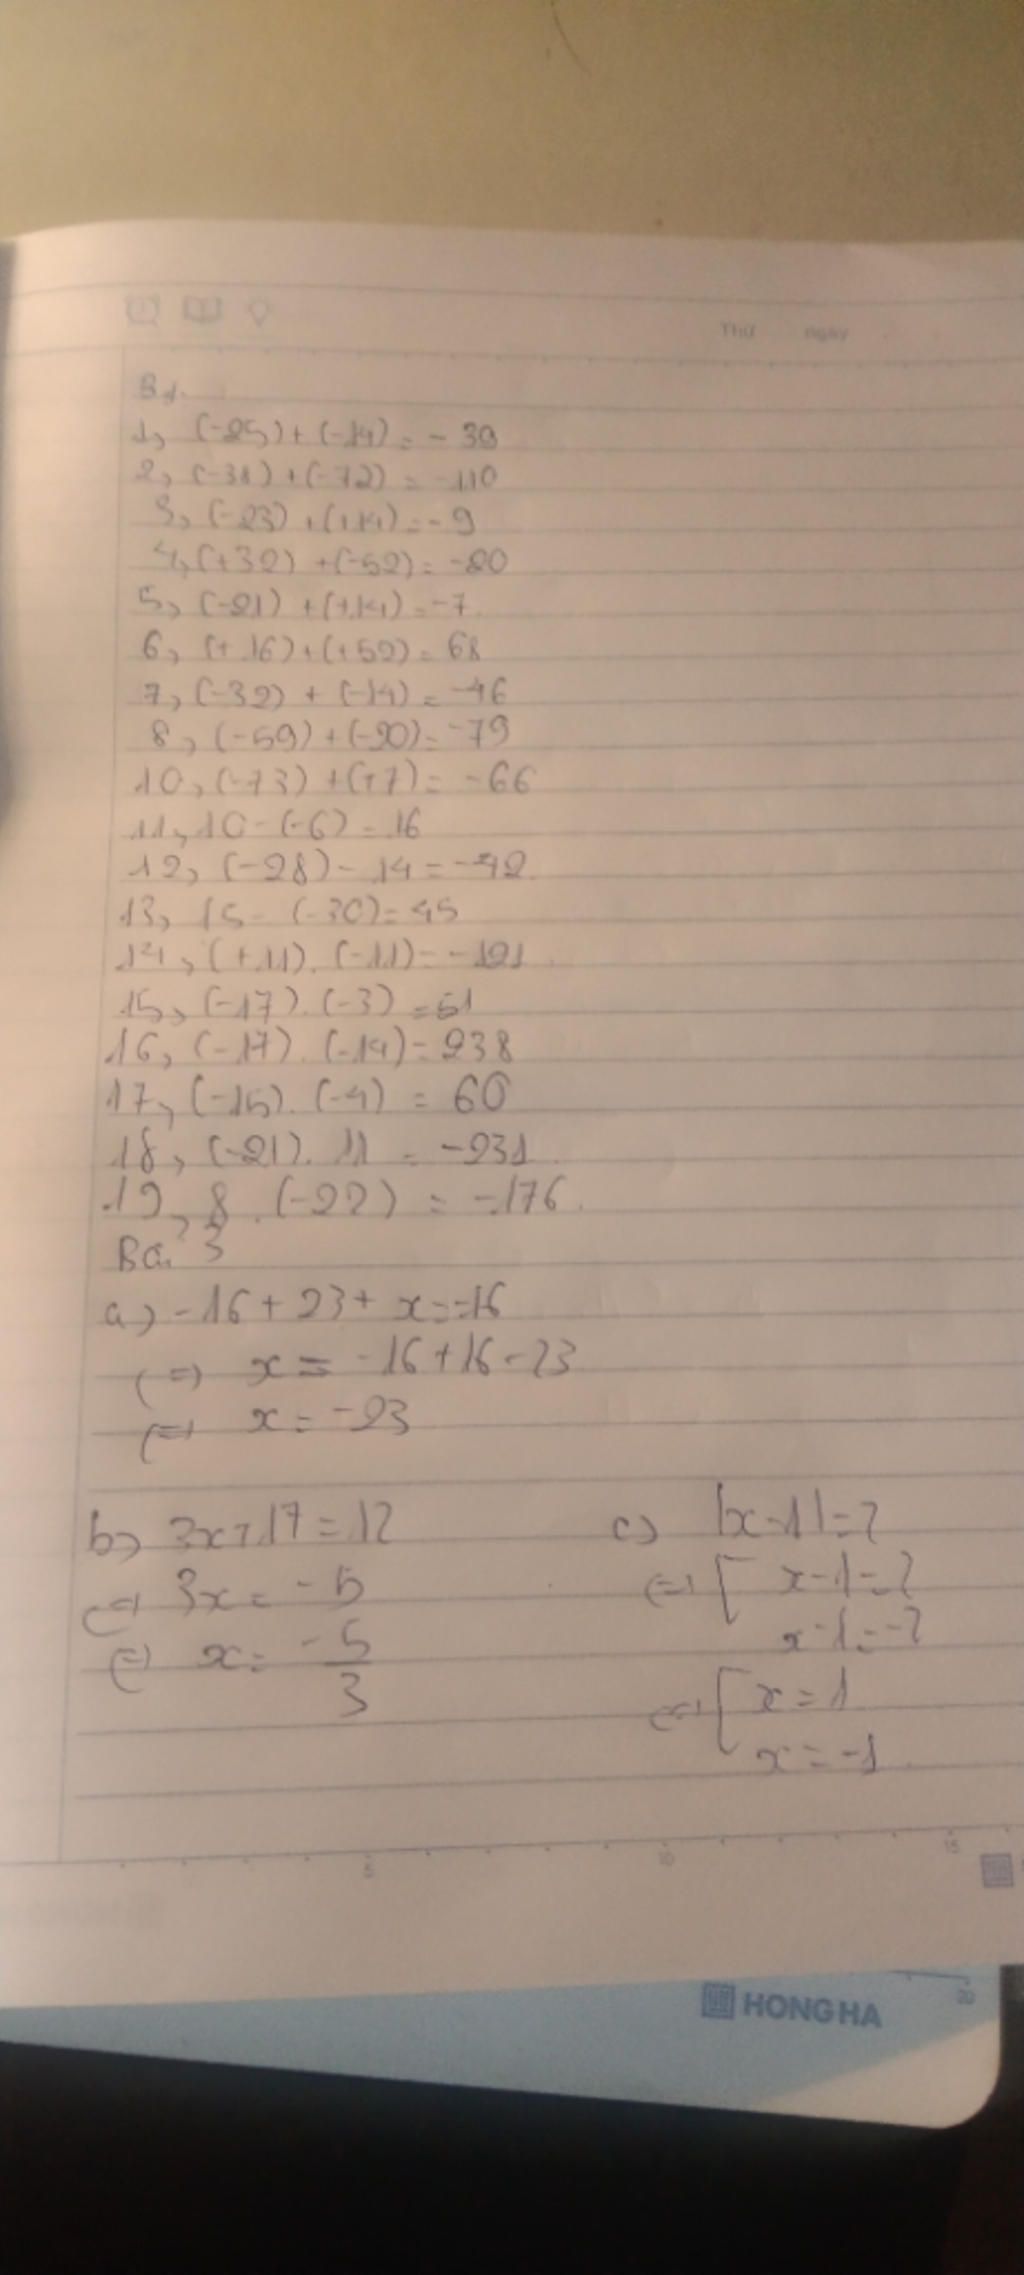 Thứ ngày
B1.
1, (-25) + (-14) = - 39
2, (-38) + (-72) = -110
3, (-23) + (+14) = - 9
4, (+32) + (-52) = -20
5, (-21) + (+14) = -7
6, (+16) + (+52) = 68
7, (-32) + (-14) = -46
8, (-59) + (-20) = -79
10, (-73) + (+7) = -66
11, 10 - (-6) = 16
12, (-28) - 14 = -42.
13, 15 - (-30) = 45
14, (+11). (-11) = -121
15, (-17). (-3) = 51
16, (-17). (-14) = 238
17, (-15). (-4) = 60
18, (-21). 11 = -231
19, 8. (-22) = -176.
Bài 3
a, -16 + 23 + x = -16
(=) x = -16 + 16 - 23
(=) x = -23
b, 3x + 17 = 12
(=) 3x = -5
(=) x = -5/3
c, |x-1| = 2
(=) [ x-1 = 2
x-1 = -2
(=) [ x = 1
x = -1
5 10 15
HONG HA
20